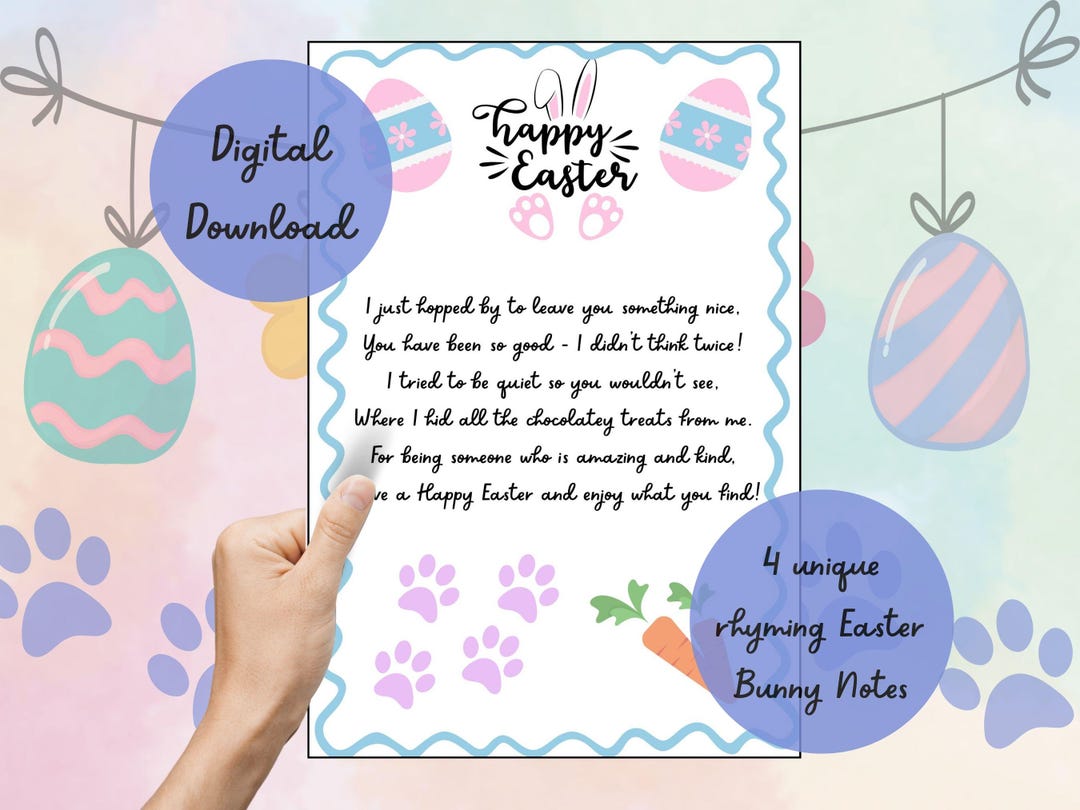 Digital
Download
happy
Easter
I just hopped by to leave you something nice,
You have been so good - I didn't think twice!
I tried to be quiet so you wouldn't see,
Where I hid all the chocolatey treats from me.
For being someone who is amazing and kind,
ve a Happy Easter and enjoy what you find!
4 unique
rhyming Easter
Bunny Notes